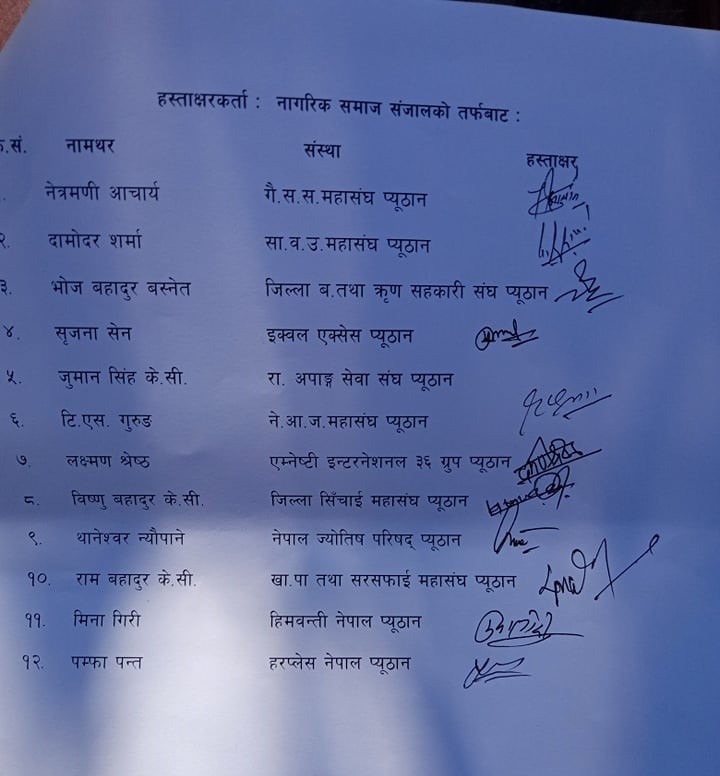 हस्ताक्षरकर्ता : नागरिक समाज संजालको तर्फबाट :
क्र.सं. नामथर संस्था हस्ताक्षर
नेत्रमणी आचार्य गै.स.स.महासंघ प्यूठान
२. दामोदर शर्मा सा.व.उ.महासंघ प्यूठान
३. भोज बहादुर बस्नेत जिल्ला ब.तथा ऋण सहकारी संघ प्यूठान
४. सृजना सेन इक्वल एक्सेस प्यूठान
५. जुमान सिंह के.सी. रा. अपाङ्ग सेवा संघ प्यूठान
६. टि.एस. गुरुङ ने.आ.ज.महासंघ प्यूठान
७. लक्ष्मण श्रेष्ठ एम्नेष्टी इन्टरनेशनल ३६ ग्रुप प्यूठान
८. विष्णु बहादुर के.सी. जिल्ला सिँचाई महासंघ प्यूठान
९. थानेश्वर न्यौपाने नेपाल ज्योतिष परिषद् प्यूठान
१०. राम बहादुर के.सी. खा.पा तथा सरसफाई महासंघ प्यूठान
११. मिना गिरी हिमवन्ती नेपाल प्यूठान
१२. पम्फा पन्त हरप्लेस नेपाल प्यूठान